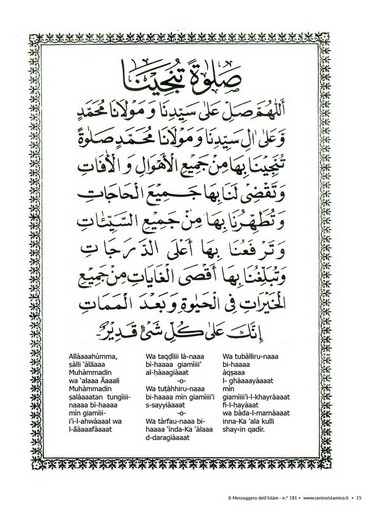 صَلٰوةً تُنْجِيْنَا
اَللّٰهُمَّ صَلِّ عَلٰى سَيِّدِنَا وَ مَوْلَانَا مُحَمَّدٍ
وَّعَلٰى اٰلِ سَيِّدِنَا وَ مَوْلَانَا مُحَمَّدٍ صَلٰوةً
تُنْجِيْنَا بِهَا مِنْ جَمِيْعِ الْاَهْوَالِ وَ الْاٰفَاتِ
وَتَقْضِىْ لَنَا بِهَا جَمِيْعَ الْحَاجَاتِ
وَتُطَهِّرُنَا بِهَا مِنْ جَمِيْعِ السَّيِّئَاتِ
وَتَرْفَعُنَا بِهَا أَعْلَى الدَّرَجَاتِ
وَتُبَلِّغُنَا بِهَا أَقْصَى الْغَايَاتِ مِنْ جَمِيْعِ
الْخَيْرَاتِ فِى الْحَيٰوةِ وَ بَعْدَ الْمَمَاتِ
اِنَّكَ عَلٰى كُلِّ شَىْءٍ قَدِيْرٌ
Allâaaahúmma,
ṣálli ‘àlâaaa
Muhàmmadin
wa ‘alaaa Âaaali
Muhàmmadin
ṣalâaaatan tungiii-
naaaa bi-haaaa
min giamiii-
i’i-l-ahwàaaal wa
l-âàaaafâaaat
Wa taqḍiiii là-naaa
bi-haaaa giamiiii’
al-ḥàaagiâaat
-o-
Wa tuṭàhhiru-naaa
bi-haaaa min giamiiii’i
s-sayyiâaaat
-o-
Wa tàrfau-naaa bi-
haaaa ‘inda-Ka ‘àlaaa
d-daragiâaaat
Wa tubàlliru-naaa
bi-haaaa
àqsaaa
l- ghâaaayâaaat
-o-
bi-haaaa min
giamiiii’i-l-khayrâaaat
fi-l-hayàaat
wa bàda-l-mamâaaat
inna-Ka ‘ala kulli
shay-in qadir.
Il Messaggero dell'Islàm - n.° 181 • www.centroislamico.it • 15